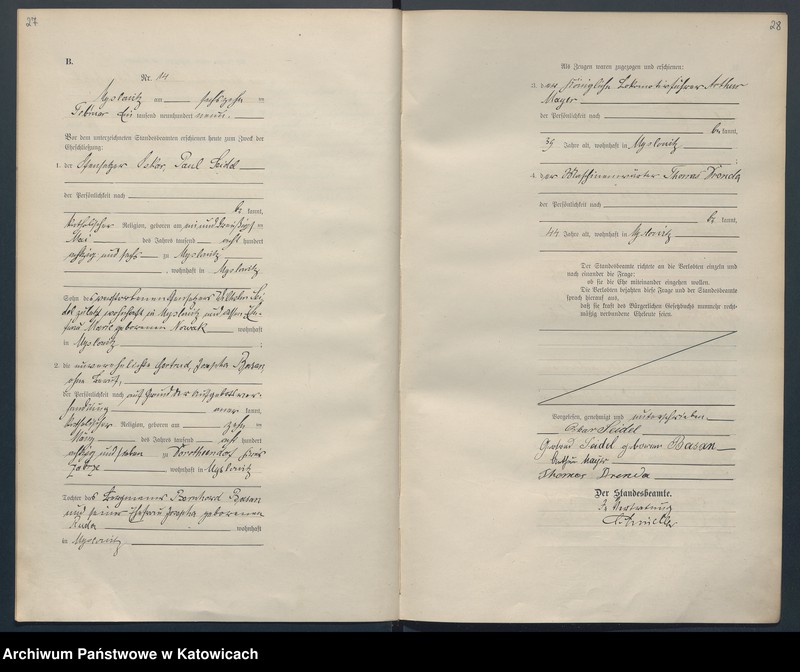 27
B.
Nr. 14
Myslowitz am sechszehn
Februar Ein tausend neunhundert neun.
Vor dem unterzeichneten Standesbeamten erschienen heute zum Zweck der
Eheschließung:
1. der Ofensetzer Oskar, Paul Seidel
der Persönlichkeit nach
be kannt,
katholischer Religion, geboren am ein und dreißigst
Mai des Jahres tausend acht hundert
achtzig und sechs zu Myslowitz
, wohnhaft in Myslowitz
Sohn des verstorbenen Ofensetzers Wilhelm Sei-
del zuletzt wohnhaft in Myslowitz und dessen Ehe-
frau Marie geborenen Nowak wohnhaft
in Myslowitz ;
2. die unverehelichte Gertrud, Josepha Basan
ohne Beruf,
der Persönlichkeit nach auf Grund der Aufgebotsver-
handlung aner kannt,
katholischer Religion, geboren am zehn
März des Jahres tausend acht hundert
achtzig und sieben zu Dorotheendorf Kreis
Zabrze wohnhaft in Myslowitz
Tochter des Bergmanns Bernhard Basan
und seiner Ehefrau Josepha geborenen
Ruda wohnhaft
in Myslowitz
28
Als Zeugen waren zugezogen und erschienen:
3. der Königliche Lokomotivführer Arthur
Mayer
der Persönlichkeit nach
be kannt,
39 Jahre alt, wohnhaft in Myslowitz ;
4. der Maschinenwärter Thomas Drenda
der Persönlichkeit nach
be kannt,
44 Jahre alt, wohnhaft in Myslowitz
Der Standesbeamte richtete an die Verlobten einzeln und
nach einander die Frage:
ob sie die Ehe miteinander eingehen wollen.
Die Verlobten bejahten diese Frage und der Standesbeamte
sprach hierauf aus,
daß sie kraft des Bürgerlichen Gesetzbuchs nunmehr recht-
mäßig verbundene Eheleute seien.
Vorgelesen, genehmigt und unterschrieben
Oskar Seidel
Gertrud Seidel geborene Basan
Arthur Mayer
Thomas Drenda
Der Standesbeamte.
In Vertretung
Archiwum Państwowe w Katowicach